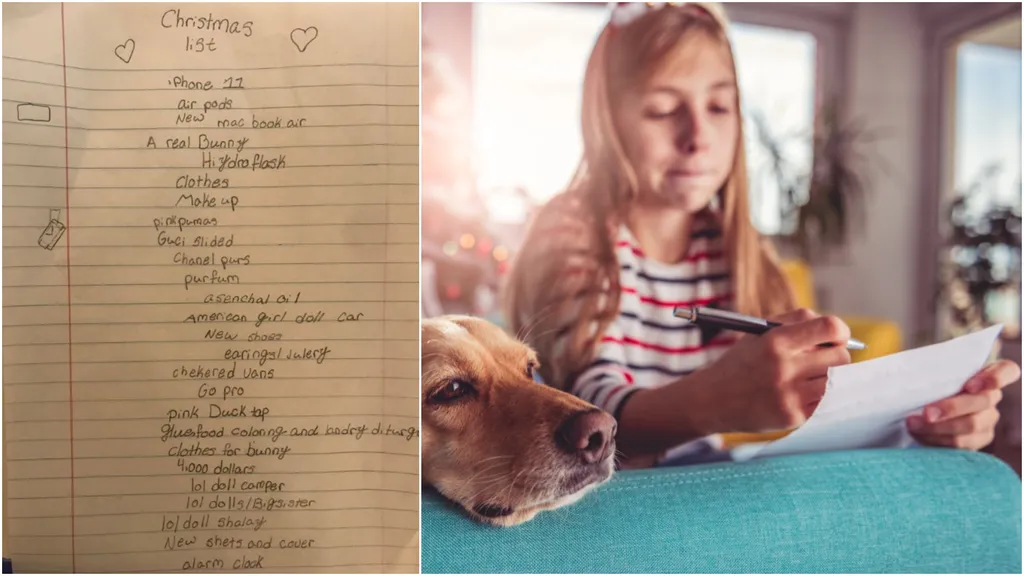 Christmas
list
iPhone 11
air pods
New mac book air
A real Bunny
Hydroflask
Clothes
Make up
pink pumas
Guci slided
Chanel purs
purfum
asenchal oil
American girl doll car
New shoes
earings/julery
chekered vans
Go pro
pink Duck tap
glue food coloring and landry diturg
clothes for bunny
4,000 dollars
lol doll camper
lol dolls/Bigsister
lol doll shalay
New shets and cover
alarm clock